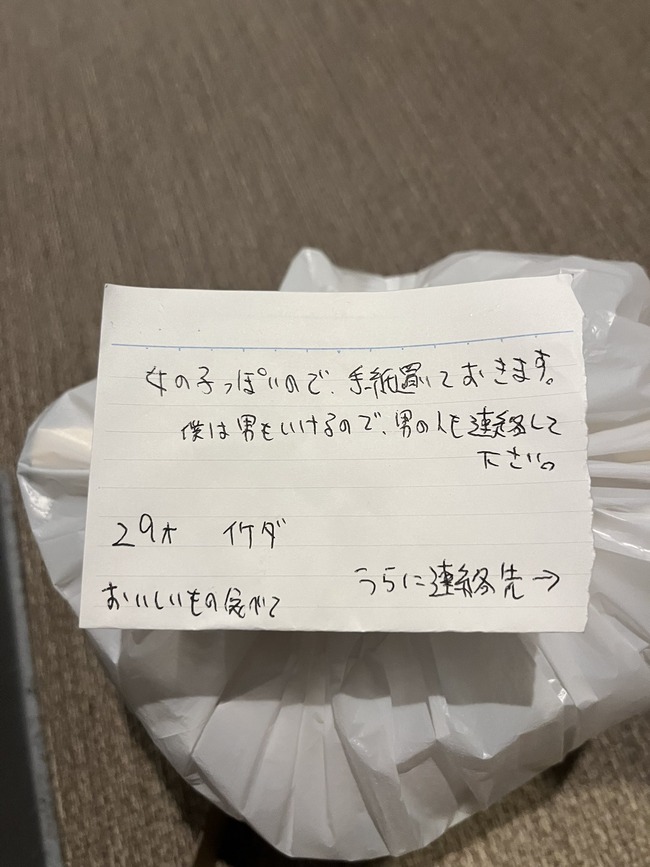 女の子っぽいので、手紙置いておきます。
僕は男もいけるので、男の人も連絡して
下さい。
29才 イケダ
うらに連絡先→
おいしいもの食べて